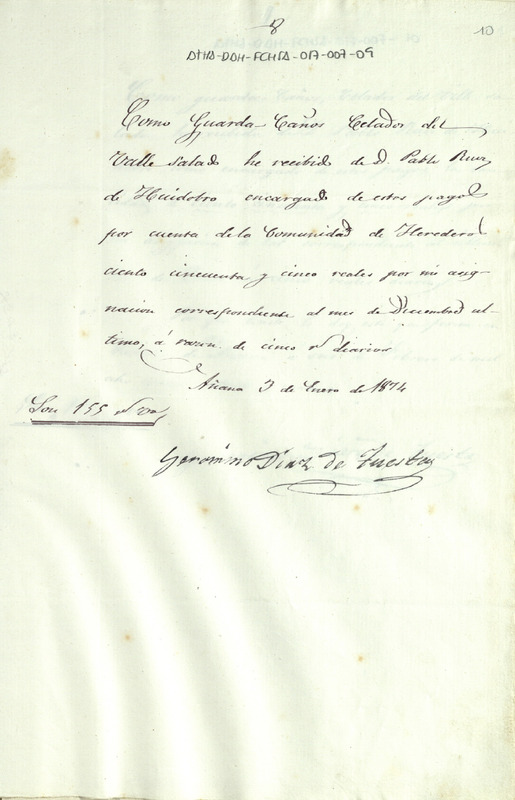 8
10
DHA-DOH-FCHSA-017-007-09
Como Guarda-Caños Celador del
Valle Salado he recibido de D. Pablo Ruiz
de Huidobro encargado de estos pagos
por cuenta de la Comunidad de Herederos
ciento cincuenta y cinco reales por mi asig-
nacion correspondiente al mes de Diciembre ul-
timo, á razon de cinco rs diarios
Añana 3 de Enero de 1874
Son 155 rs vn,
Geronimo Diaz de Tuesta